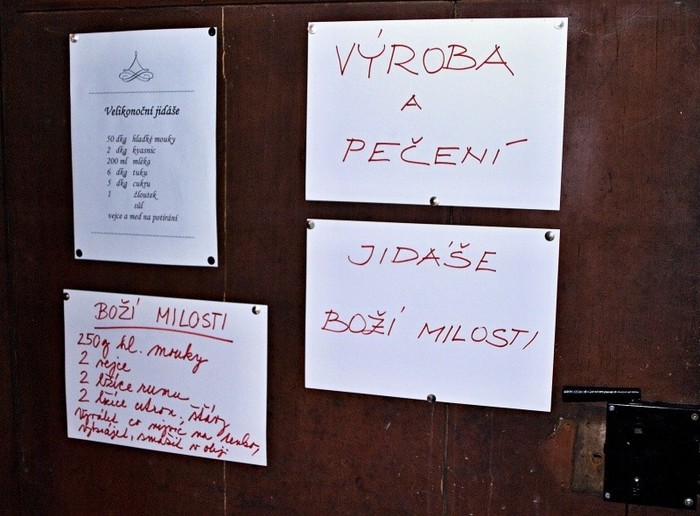 Velikonoční jidáše
50 dkg hladké mouky
2 dkg kvasnic
200 ml mléka
6 dkg tuku
5 dkg cukru
1 žloutek
sůl
vejce a med na potírání
VÝROBA
A
PEČENÍ
JIDÁŠE
BOŽÍ MILOSTI
BOŽÍ MILOSTI
250g hl. mouky
2 vejce
2 lžíce rumu
2 lžíce citron. šťávy
vyválet co nejvíc na tenko,
vykrájet, smažit v oleji